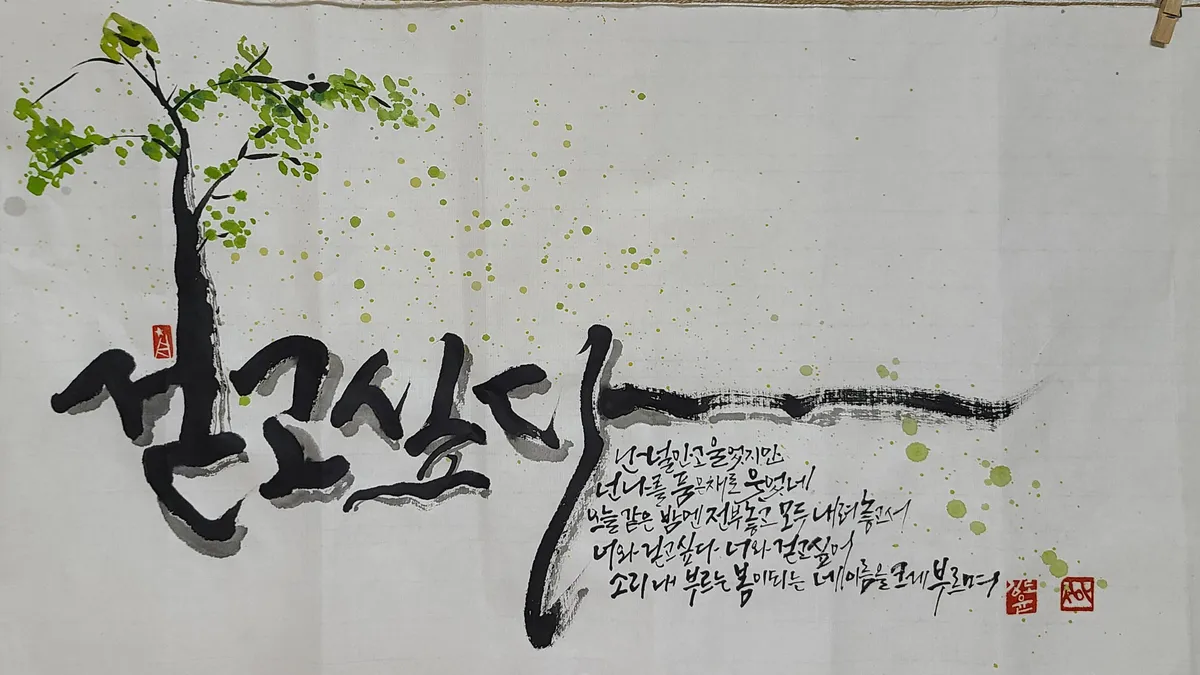 걷고싶다
난 널 안고 울었지만
넌 나를 품은채로 웃었네
오늘 같은 밤엔 전부놓고 모두 내려놓고서
너와 걷고싶다 너와 걷고싶어
소리내 부르는 봄이 되는 네 이름을 크게 부르며